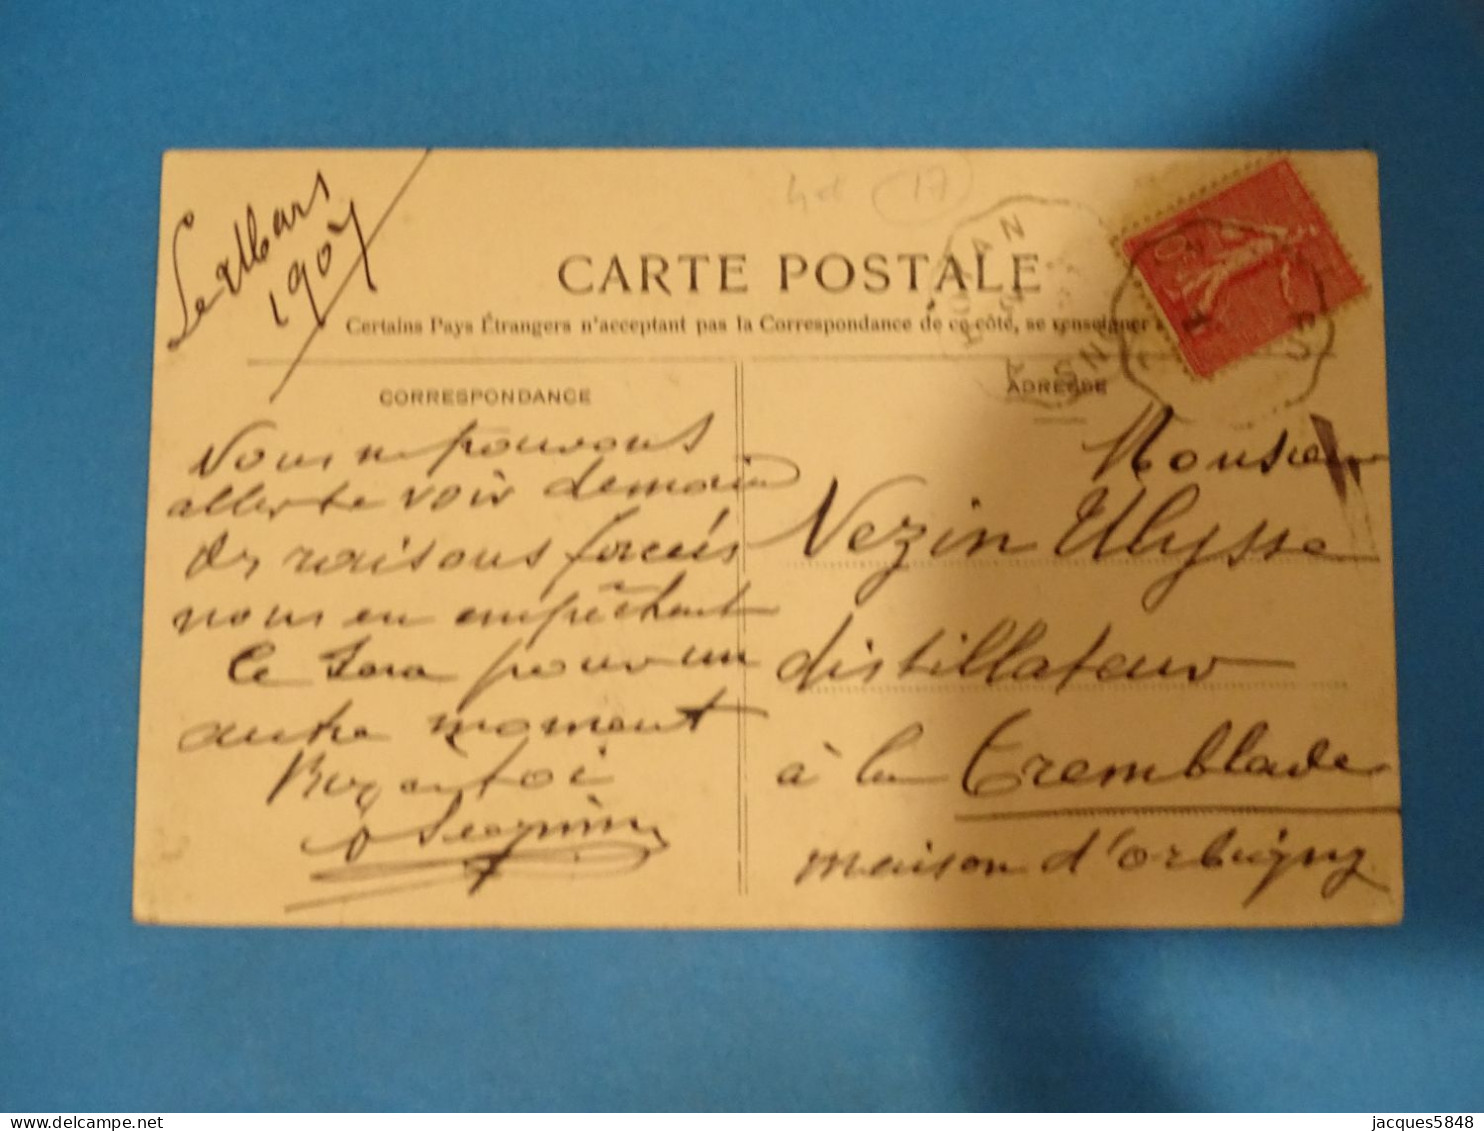 Le Mars
1907
17
CARTE POSTALE
Certains Pays Étrangers n'acceptent pas la Correspondance de ce côté, se renseigner
CORRESPONDANCE
ADRESSE
Nous ne pouvons
aller te voir demain
des raisons forcées
nous en empêchent
Ce sera pour un
autre moment
Bien à toi
Seguin
Monsieur
Vezin Ulysse
distillateur
à la Tremblade
maison d'orbigny
jacques5848